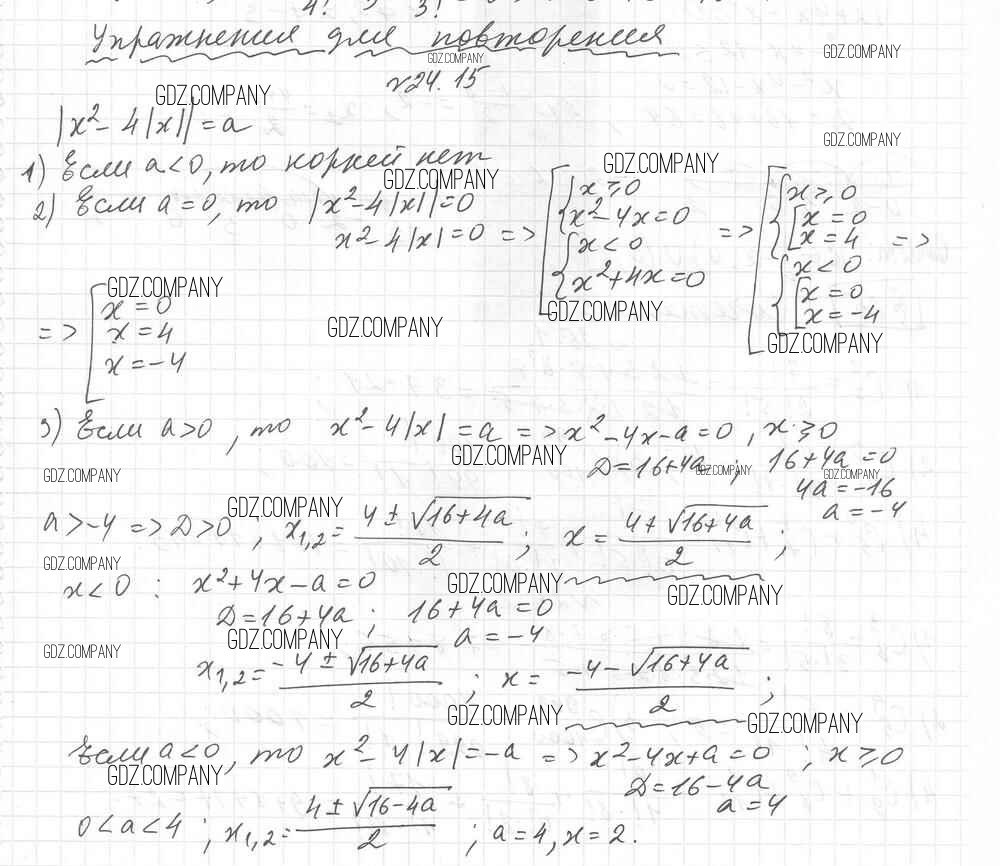 4! 3!
Упражнения для повторения
GDZ.COMPANY
GDZ.COMPANY
№24.15
GDZ.COMPANY
|x² - 4|x|| = a
GDZ.COMPANY
1) Если a<0, то корней нет
GDZ.COMPANY
GDZ.COMPANY
2) Если a=0, то |x²-4|x||=0
x²-4|x|=0 => [ { x≥0
x²-4x=0
{ x<0
x²+4x=0
GDZ.COMPANY
=> [ { x≥0
[ x=0
x=4
{ x<0
[ x=0
x=-4
GDZ.COMPANY
=>
GDZ.COMPANY
=> [ x=0
x=4
x=-4
GDZ.COMPANY
3) Если a>0, то x²-4|x|=a => x²-4x-a=0, x≥0
GDZ.COMPANY
D=16+4a; 16+4a=0
GDZ.COMPANY
GDZ.COMPANY
GDZ.COMPANY
4a=-16
a=-4
GDZ.COMPANY
a>-4 => D>0; x₁,₂ = (4±√(16+4a))/2; x = (4+√(16+4a))/2;
GDZ.COMPANY
x<0: x²+4x-a=0
GDZ.COMPANY
GDZ.COMPANY
D=16+4a; 16+4a=0
GDZ.COMPANY
a=-4
GDZ.COMPANY
x₁,₂ = (-4±√(16+4a))/2; x = (-4-√(16+4a))/2;
GDZ.COMPANY
GDZ.COMPANY
Если a<0, то x²-4|x|=-a => x²-4x+a=0; x≥0
GDZ.COMPANY
D=16-4a
a=4
0<a<4; x₁,₂ = (4±√(16-4a))/2; a=4, x=2.